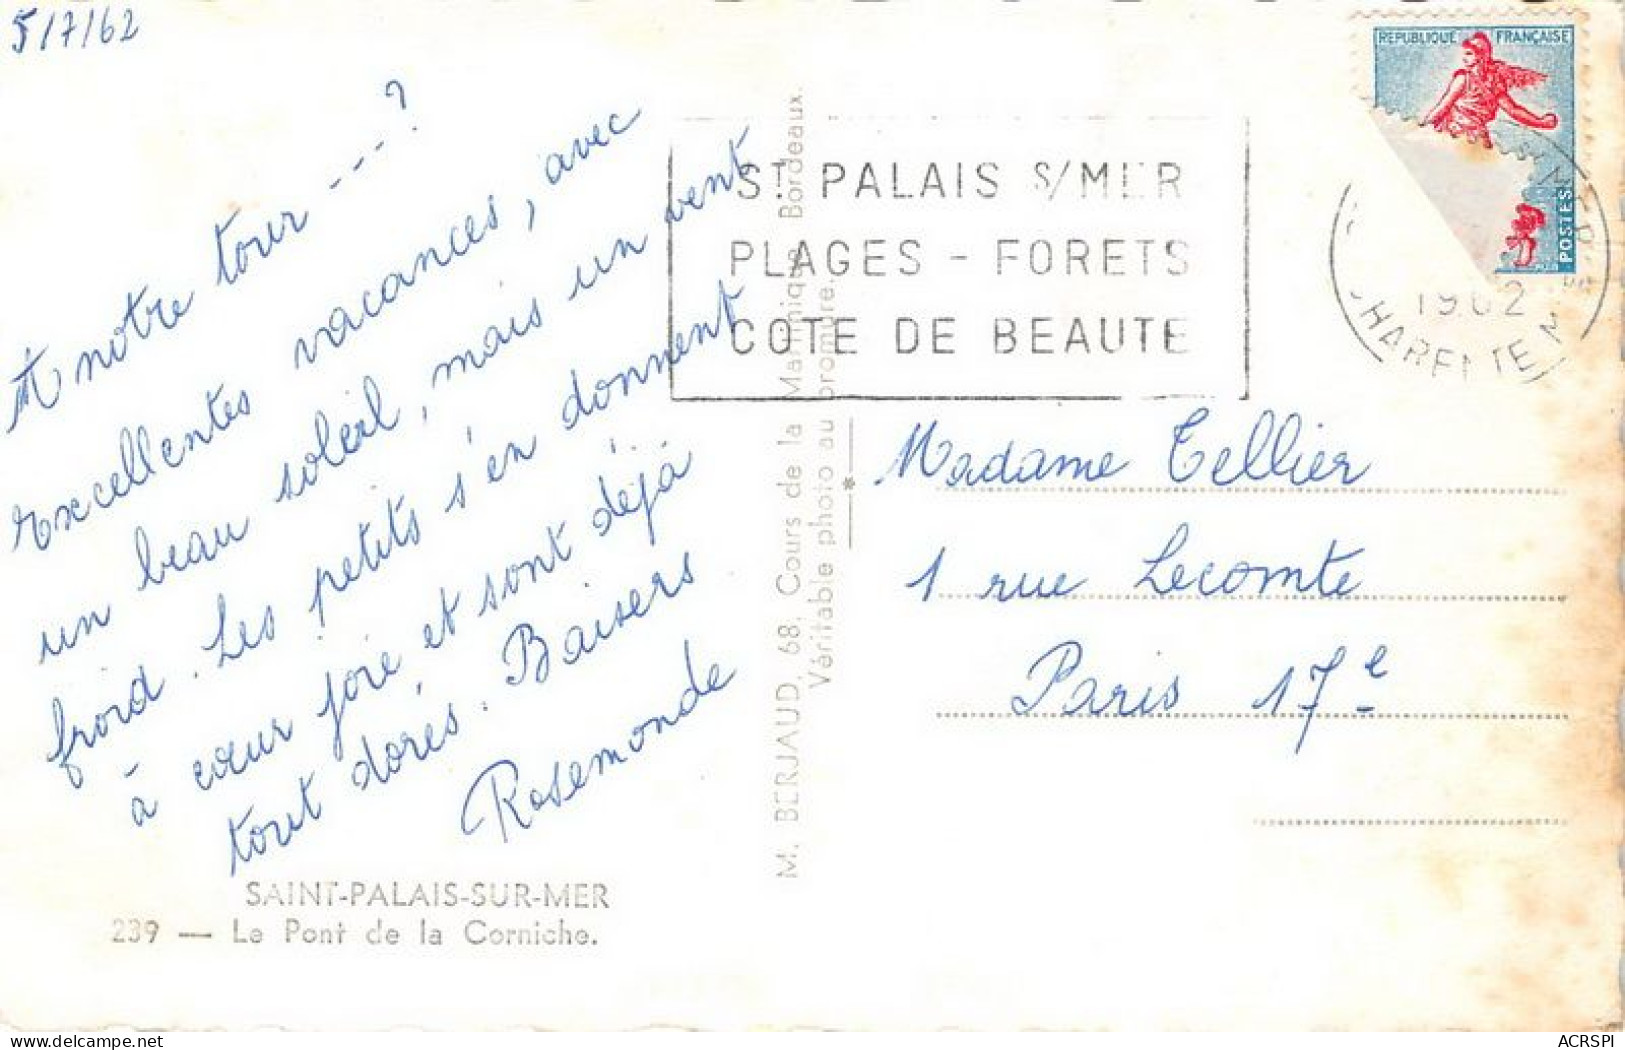 5/7/62
A notre tour ---?
Excellentes vacances, avec
un beau soleil, mais un vent
froid. Les petits s'en donnent
à cœur joie et sont déjà
tout dorés. Baisers
Rosemonde
SAINT-PALAIS-SUR-MER
239 — Le Pont de la Corniche.
M. BERJAUD, 68, Cours de la Martinique, Bordeaux.
Véritable photo au bromure.
ST PALAIS S/MER
PLAGES - FORETS
COTE DE BEAUTE
REPUBLIQUE FRANÇAISE
POSTES
1962
CHARENTE
Madame Tellier
1 rue Lecomte
Paris 17e
ACRSPI